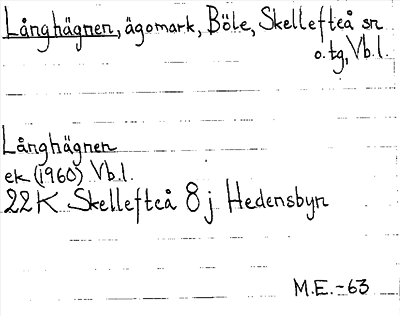 Långhägnen, ägomark, Böle, Skellefteå sn
o. tg, Vb.l.
Långhägnen
ek (1960) Vb.l.
22K Skellefteå 8j Hedensbyn
M.E.-63